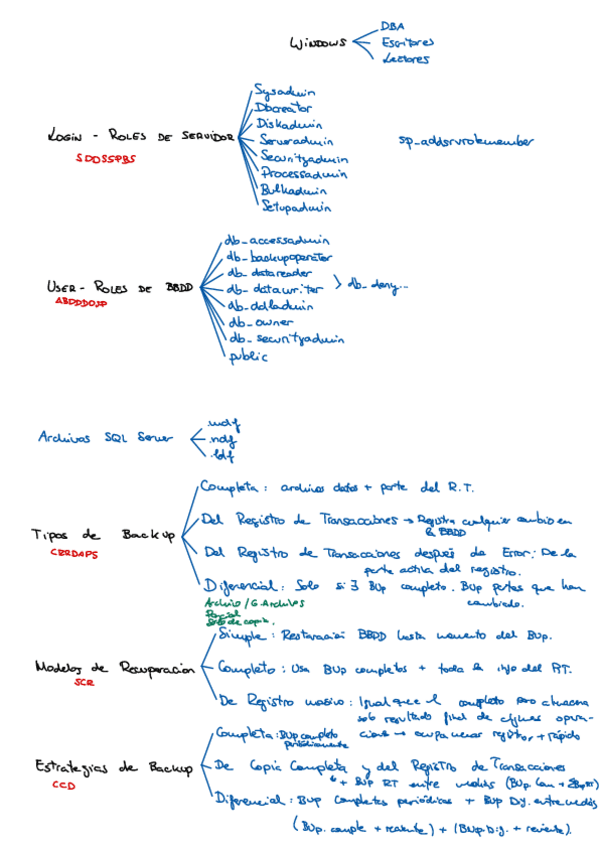 DBA
WINDOWS
Escritores
Lectores
Sysadmin
Dbcreator
Diskadmin
LOGIN - ROLES DE SERVIDOR
Serveradmin
sp_addsrvrolemember
SDDSSPBS
Securityadmin
Processadmin
Bulkadmin
Setupadmin
db_accessadmin
db_backupoperator
db_datareader
USER - ROLES DE BBDD
db_datawriter
db_deny...
ABDDDOSP
db_ddladmin
db_owner
db_securityadmin
public
.mdf
Archivos SQL Server
.ndf
.ldf
Completa: archivos datos + parte del R.T.
Tipos de Backup
Del Registro de Transacciones → Registra cualquier cambio en
la BBDD
Del Registro de Transacciones después de Error: De la
parte activa del registro.
Diferencial: Solo si ∃ BUp completo. BUp partes que han
cambiado.
Archivo / G. Archivos
Parcial
Sólo de copia.
Simple: Restauración BBDD hasta momento del BUp.
Modelos de Recuperacion
SCR
Completo: Usa BUp completos + toda la info del RT.
De Registro masivo: Igual que el completo pero almacena
solo resultado final de algunas opera-
ciones → ocupa menos registro, + rápido
Completa: BUp completo
periódicamente
Estrategias de Backup
CCD
De Copia Completa y del Registro de Transacciones
+ BUp RT entre medias
Diferencial: BUp Completos periódicos + BUp Dif. entre medias
(BUp. comple + reciente) + (BUp. Dif. + reciente).